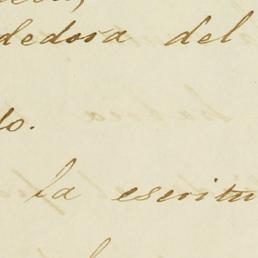 dedora del
do.
la escritu